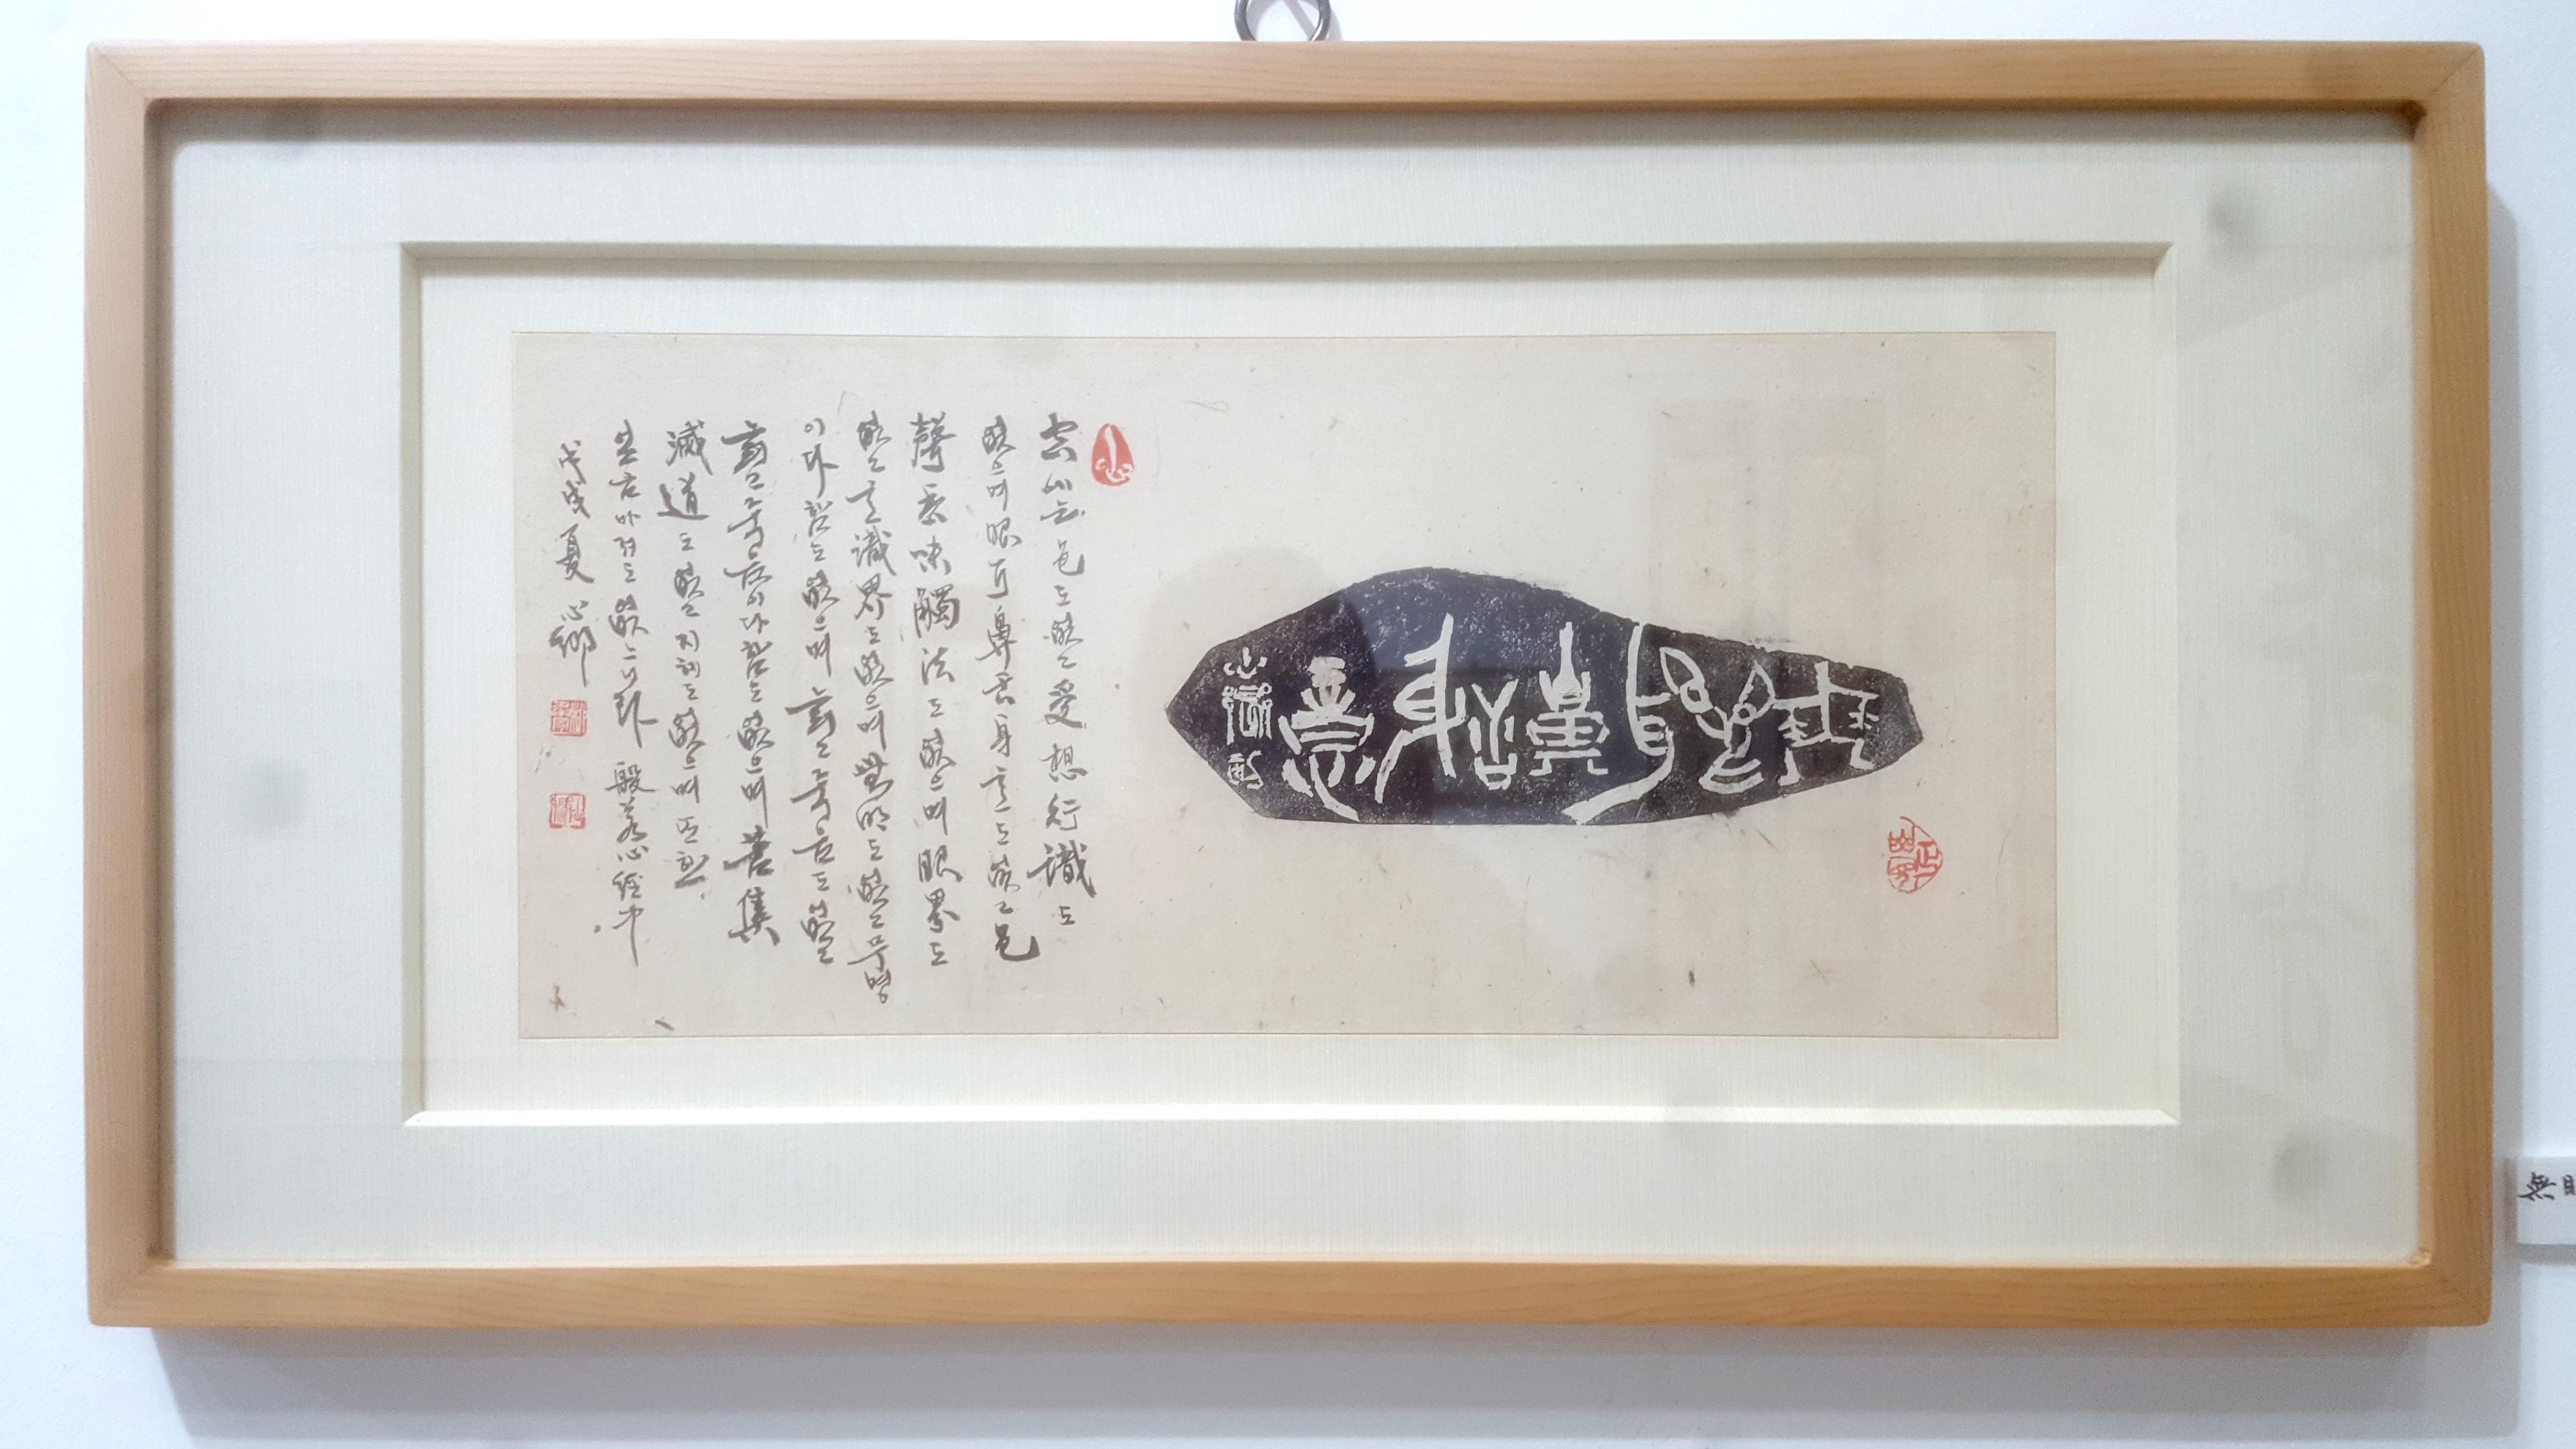 無眼耳鼻舌身意
心鄕刻
空에는 色도 없고 受想行識도
없으며 眼耳鼻舌身意도 없고 色
聲香味觸法도 없으며 眼界도
없고 意識界도 없으며 無明도 없고 무명
이 다함도 없으며 늙고 죽음도 없고
늙고 죽음이 다함도 없으며 苦集
滅道도 없고 지혜도 없으며 또한
般若心經中
戊戌夏 心鄕
無